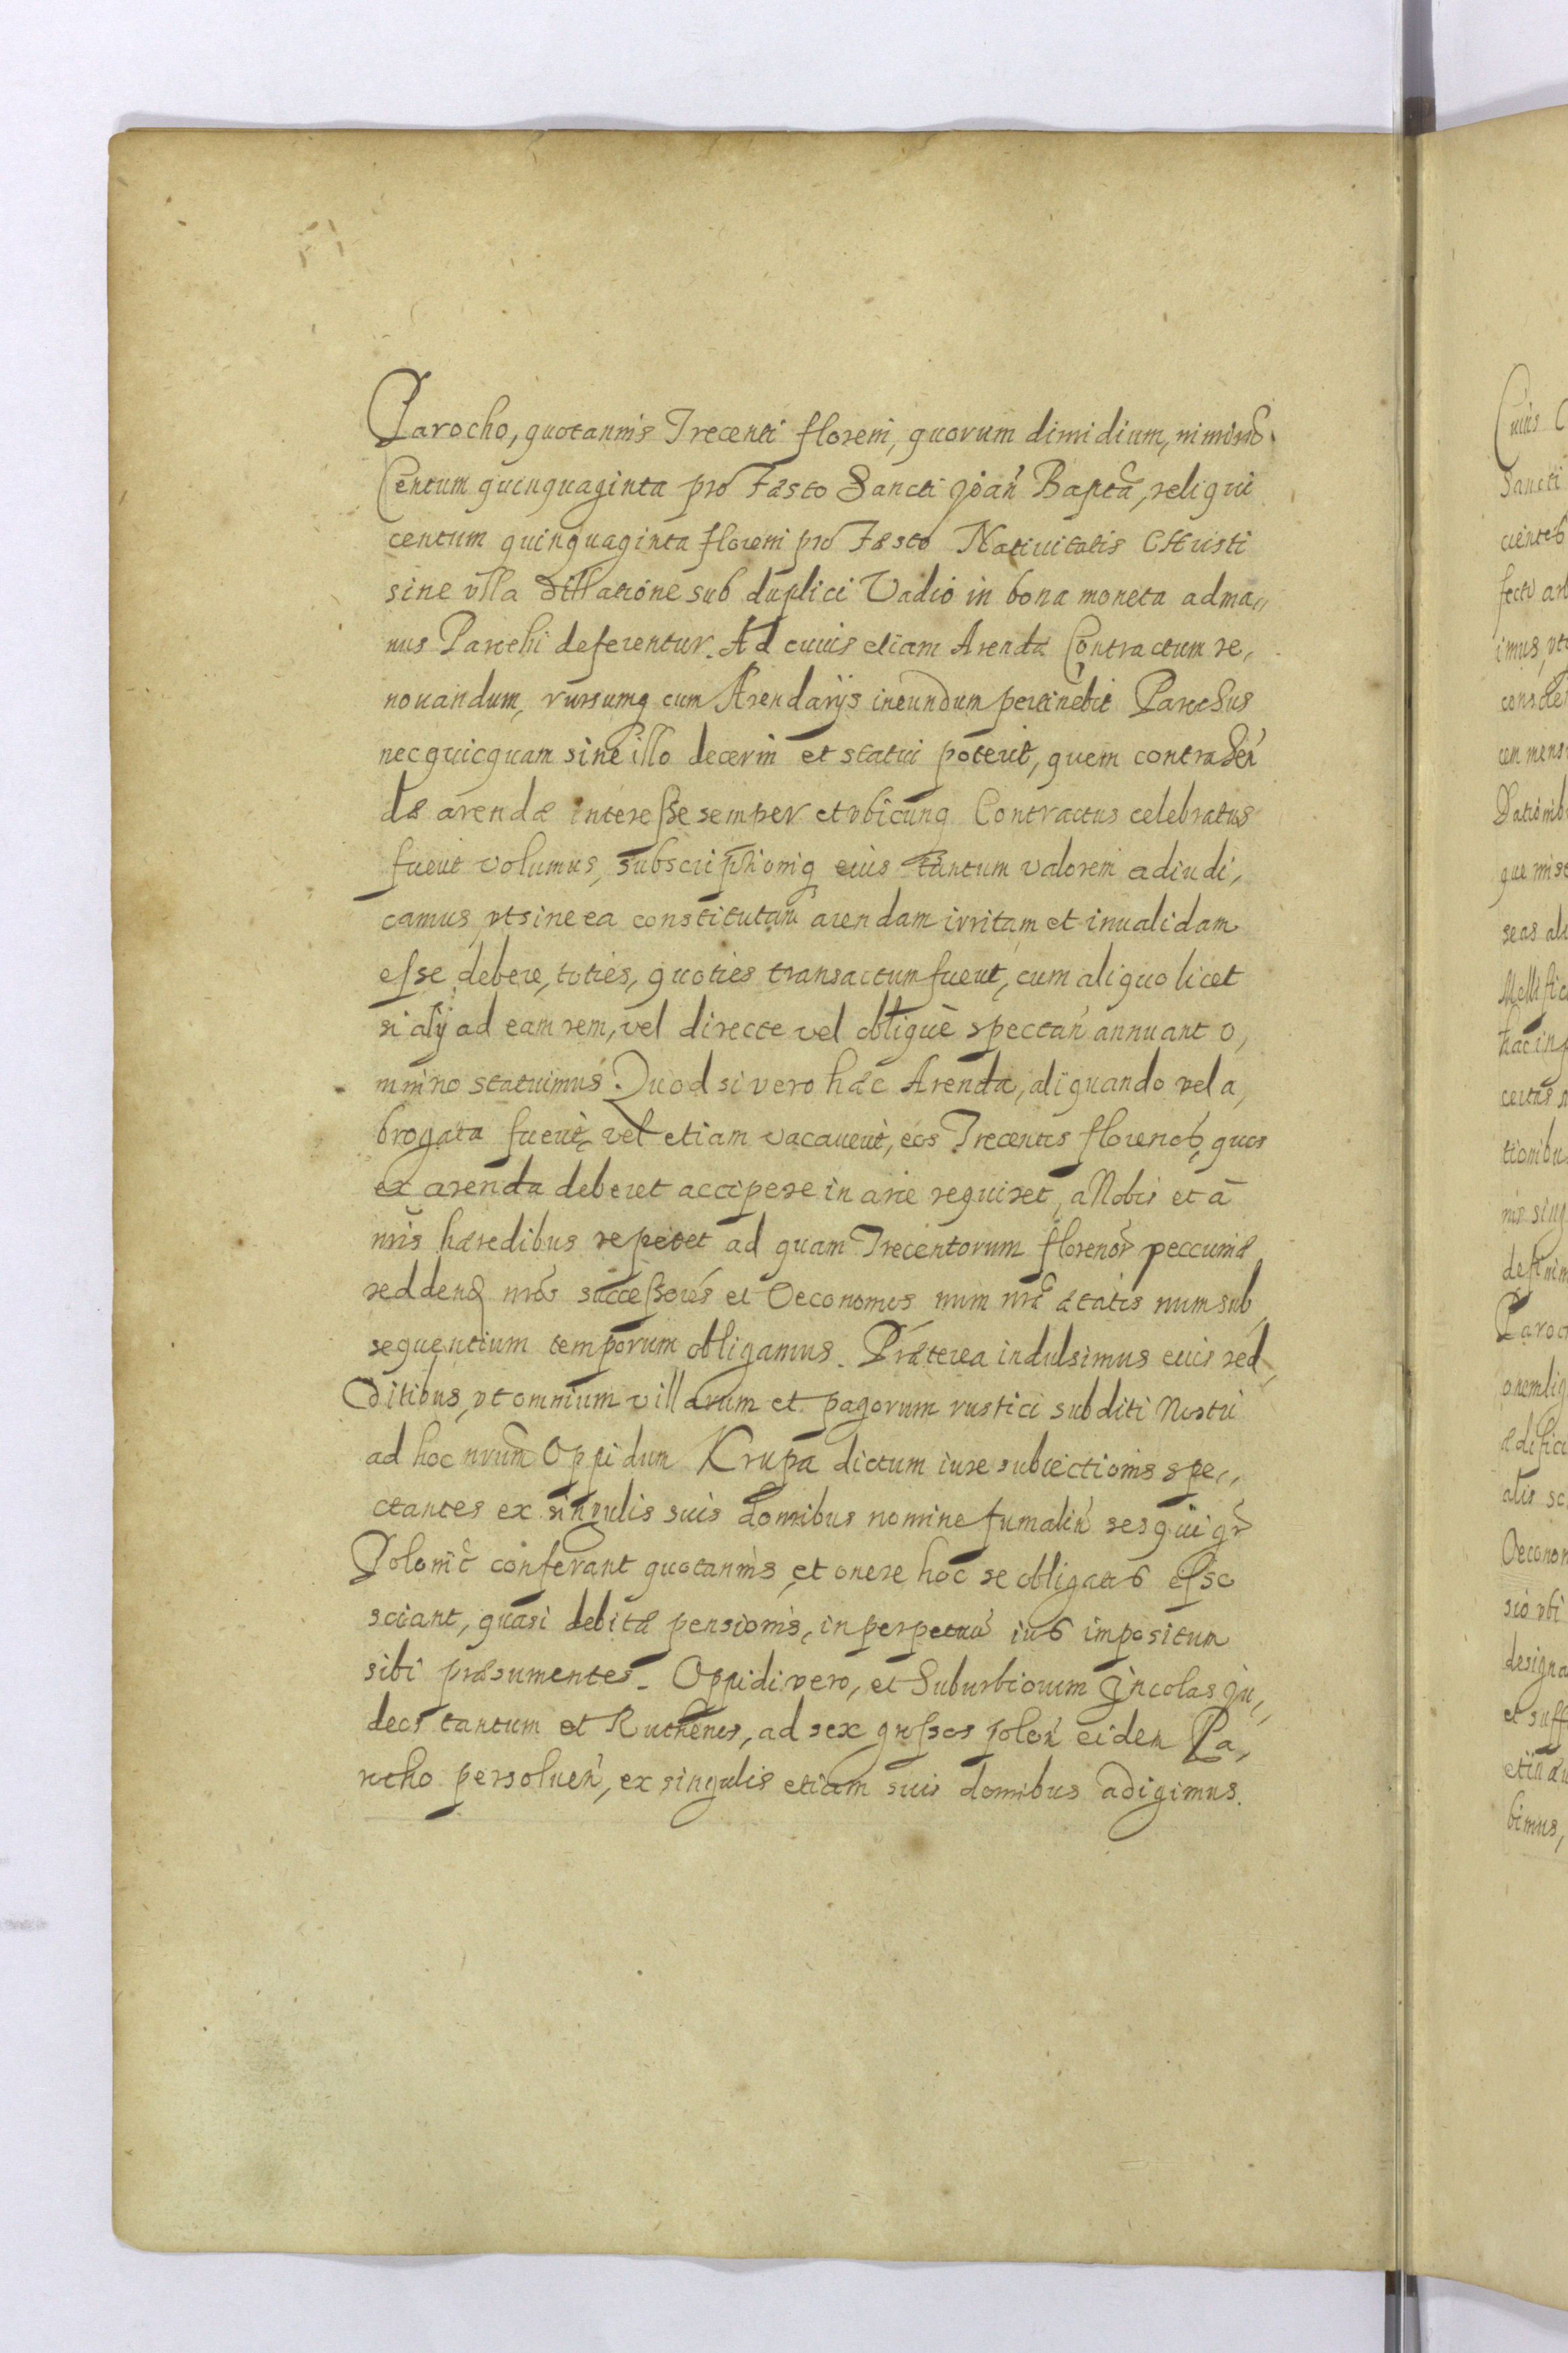 Parocho, quotannis Trecenti floreni, quorum dimidium, nimirũ
Centum quinquaginta pro Fæsto Sancti Joañ Baptæ, reliqui
centum quinquaginta floreni pro Fæsto Natiuitatis CHristi
sine vlla dillatione sub duplici Vadio in bona moneta ad ma„
nus Parochi deferentur. Ad cuius etiam Arendæ Contractum re,
nouandum, rursumq cum Arendarijs ineundum pertinebit Parochus
nec quicquam sine illo decerni et statui poterit, quem contrahen
dæ arendæ interesse semper et vbicunq Contractus celebratus
fuerit volumus, subscriptioniq eius tantum valorem adiudi,
camus, vt sine ea constitutam arendam irritam et inualidam
esse debere, toties, quoties transactum fuerit, cum aliquo licet
si alij ad eam rem, vel directe vel obliquè spectañ annuant o,
mnino statuimus. Quod si vero hæc Arenda, aliquando vel a,
brogata fuerit, vel etiam vacauerit, eos Trecentos florenos, quos
ex arenda deberet accipere in arce requiret, a Nobis et à
nr̃is hæredibus repetet ad quam Trecentorum florenor̃ peccuniæ
reddend nr̃os successores et Oeconomos num nr̃æ ætatis num sub,
sequentium temporum obligamus. Præterea indulsimus eius red,
ditibus, vt omnium villarum et pagorum rustici subditi Nostri
ad hoc nrũm Oppidum Krupa dictum iure subiectionis spe„
ctantes ex singulis suis domibus nomine fumaliũ sesqui gr̃
Polonic̃ conferant quotannis, et onere hoc se obligatos esse
sciant, quasi debitæ pensionis, in perpetuũ ius impositum
sibi præsumentes. Oppidi vero, et Suburbiorum Jncolas Ju„
deos tantum et Ruthenos, ad sex grossos poloñ eidem Pa,
rocho persolueñ, ex singulis etiam suis domibus adigimus.